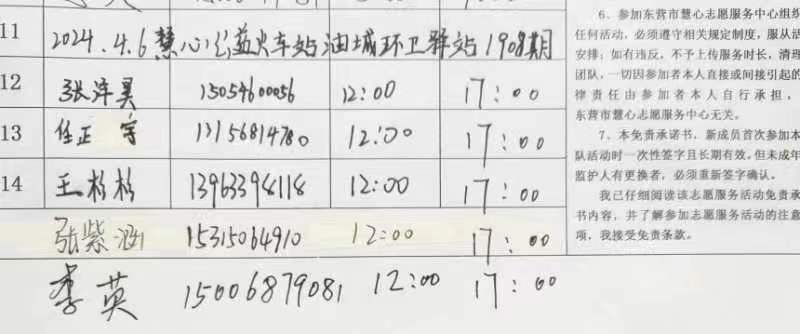 11 2024.4.6慧心公益火车站油城环卫驿站1908期
12 张泽昊 15054600056 12:00 17:00
13 任正宇 13156814780 12:00 17:00
14 王杉杉 13963398118 12:00 17:00
张紫涵 15315064910 12:00 17:00
李英 15006879081 12:00 17:00
6、参加东营市慧心志愿服务中心组织
任何活动，必须遵守相关规定制度，服从活
安排；如有违反，不予上传服务时长，清理
团队，一切因参加者本人直接或间接引起的
律责任由参加者本人自行承担，
东营市慧心志愿服务中心无关。
7、本免责承诺书，新成员首次参加本
队活动时一次性签字且长期有效，但未成年
监护人有更换者，必须重新签字确认。
我已仔细阅读该志愿服务活动免责承
书内容，并了解参加志愿服务活动的注意
项，我接受免责条款。